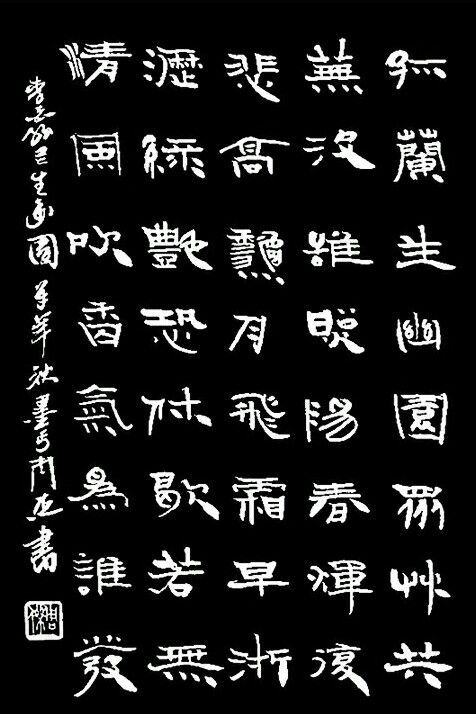 孤蘭生幽園眾艸共
蕪沒雖照陽春輝復
悲高秋月飛霜早淅
瀝綠艷恐休歇若無
清風吹香氣為誰發
年秋墨書